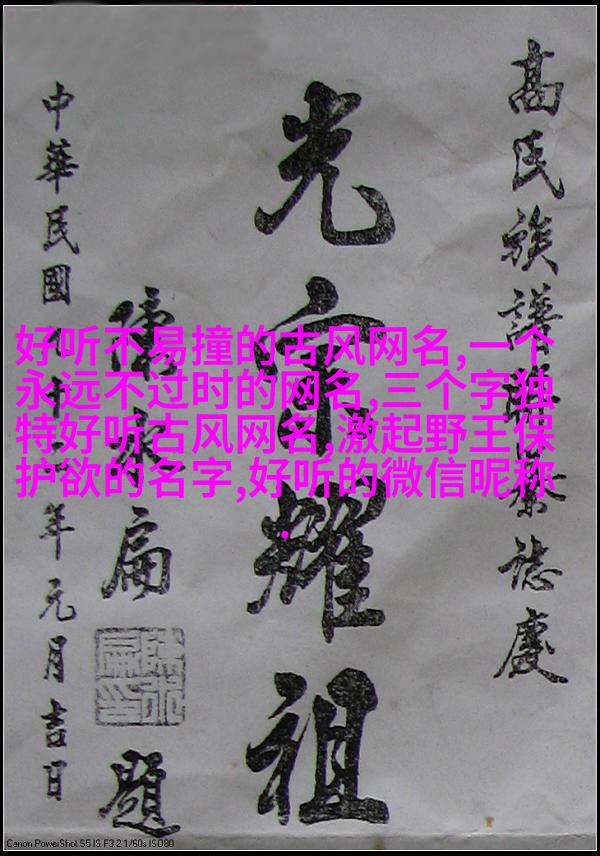 高氏族譜誌慶
光宗耀祖
陳水扁題
中華民國年元月吉日
好听不易撞的古风网名,一个
永远不过时的网名,三个字独
特好听古风网名,激起野王保
护欲的名字,好听的微信昵称
.
Canon PowerShot S5 IS F3.2 1/60s ISO80